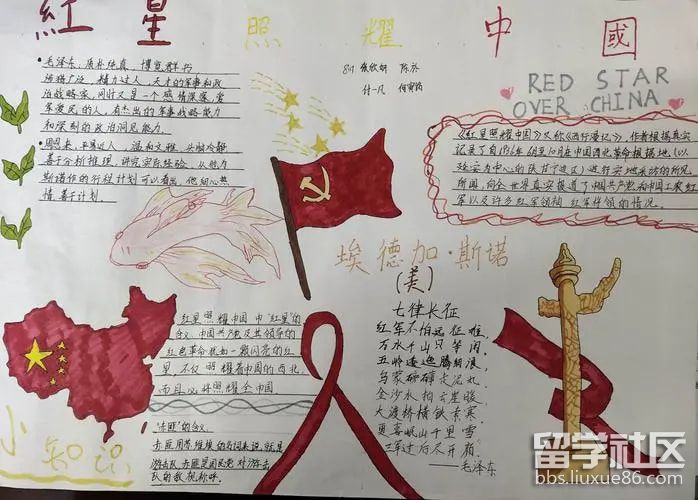 紅星照耀中國
RED STAR
OVER CHINA
毛泽东，质朴纯真，博览群书
精力过人，天才的军事和政
治战略家，同时又是一个感情深邃，
爱民的人，有杰出的军事战略能力
和深刻的政治洞见能力
周恩来，平易近人，温和文雅，头脑冷静
善于分析推理，讲究实际经验，从他为
斯诺作的行程计划可以看出，他细心热
情，善于计划．
《红星照耀中国》又称《西行漫记》，作者根据真实
记录了自1936年6月至10月在中国西北革命根据地（以
延安为中心的陕甘宁边区）进行实地采访的所见
所闻，向全世界真实报道了中国共产党和中国工农红
军以及许多红军领袖、红军将领的情况。
埃德加·斯诺
（美）
七律长征
红军不怕远征难，
万水千山只等闲．
五岭逶迤腾细浪，
乌蒙磅礴走泥丸．
金沙水拍云崖暖，
大渡桥横铁索寒．
更喜岷山千里雪
三军过后尽开颜．
——毛泽东
红星照耀中国中"红星"的
含义，中国共产党及其领导的
红色革命犹如一颗闪亮的红
星，不仅照耀着中国的西北
而且必将照耀全中国
小知识
"赤匪"的含义
游击队，赤匪是国民党对游击
队的敌视称呼．
留学社区
bbs.liuxue86.com